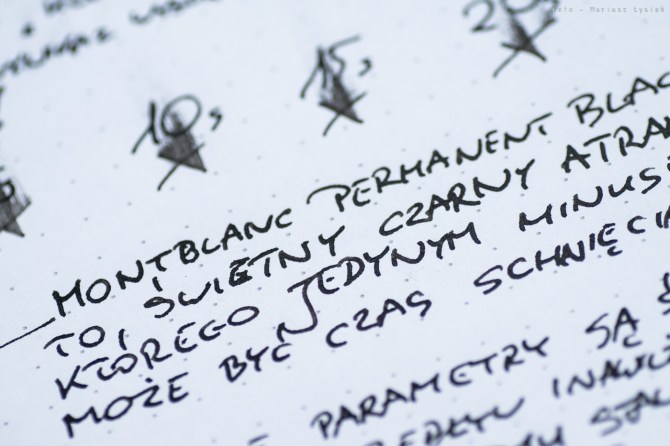 foto - Mariusz Łysiek
10s 15s 20
MONTBLANC PERMANENT BLAC
TO ŚWIETNY CZARNY ATRA
KTÓREGO JEDYNYM MINUS
MOŻE BYĆ CZAS SCHNIĘCI
PARAMETRY SĄ